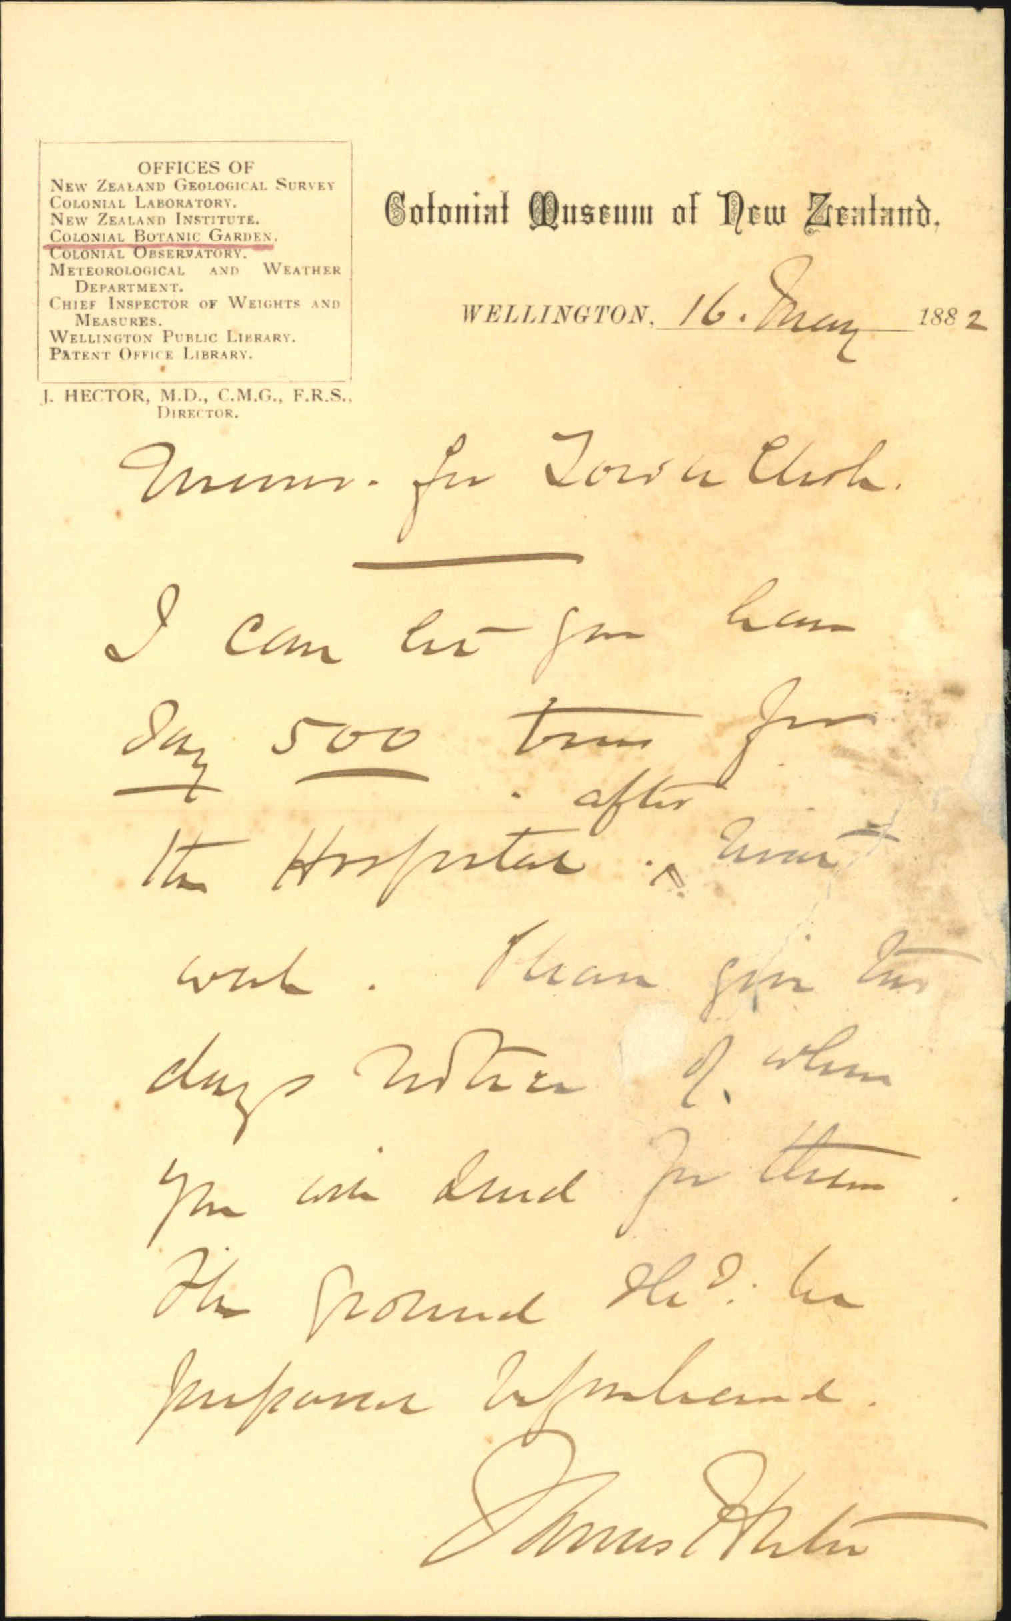 OFFICES OF
NEW ZEALAND GEOLOGICAL SURVEY
COLONIAL LABORATORY.
NEW ZEALAND INSTITUTE.
COLONIAL BOTANIC GARDEN.
COLONIAL OBSERVATORY.
METEOROLOGICAL AND WEATHER
DEPARTMENT.
CHIEF INSPECTOR OF WEIGHTS AND
MEASURES.
WELLINGTON PUBLIC LIBRARY.
PATENT OFFICE LIBRARY.
J. HECTOR, M.D., C.M.G., F.R.S.,
DIRECTOR.
Colonial Museum of New Zealand.
WELLINGTON, 16. May 1882
Memo. for Town Clerk.
I can let you have
say 500 trees for
the Hospital . after next
week . Please give two
days notice of when
you will send for them .
The ground shd. be
prepared beforehand .
James Hector